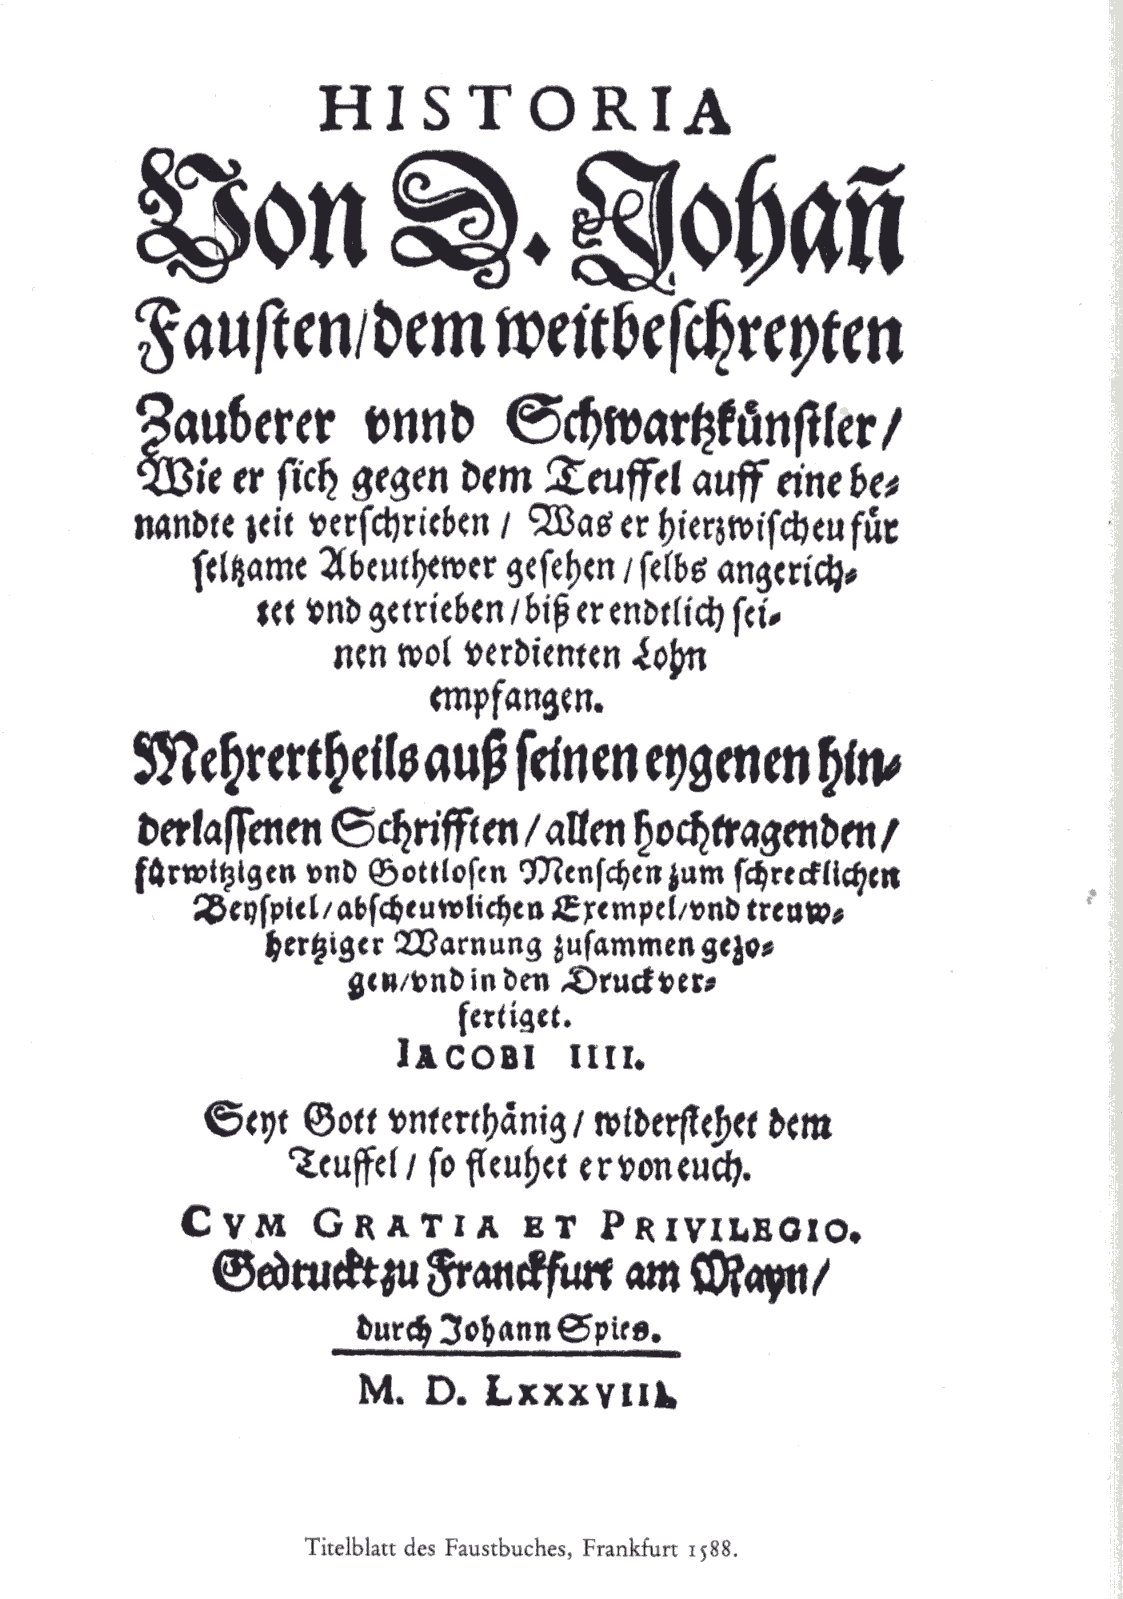 HISTORIA
Von D. Johañ
Fausten/dem weitbeschreyten
Zauberer vnnd Schwartzkuͤnstler/
Wie er sich gegen dem Teuffel auff eine be⸗
nandte zeit verschrieben / Was er hierzwischeu fuͤr
seltzame Abeuthewer gesehen / selbs angerich⸗
tet vnd getrieben / biß er endtlich sei⸗
nen wol verdienten Lohn
empfangen.
Mehrertheils auß seinen eygenen hin⸗
derlassenen Schrifften / allen hochtragenden/
fuͤrwitzigen vnd Gottlosen Menschen zum schrecklichen
Beyspiel / abscheuwlichen Exempel / vnd treuw⸗
hertziger Warnung zusammen gezo⸗
gen / vnd in den Druck ver⸗
fertiget.
IACOBI IIII.
Seyt Gott vnterthaͤnig / widerstehet dem
Teuffel / so fleuhet er von euch.
CVM GRATIA ET PRIVILEGIO.
Gedruckt zu Franckfurt am Mayn/
durch Johann Spies.
M. D. LXXXVIII.
Titelblatt des Faustbuches, Frankfurt 1588.